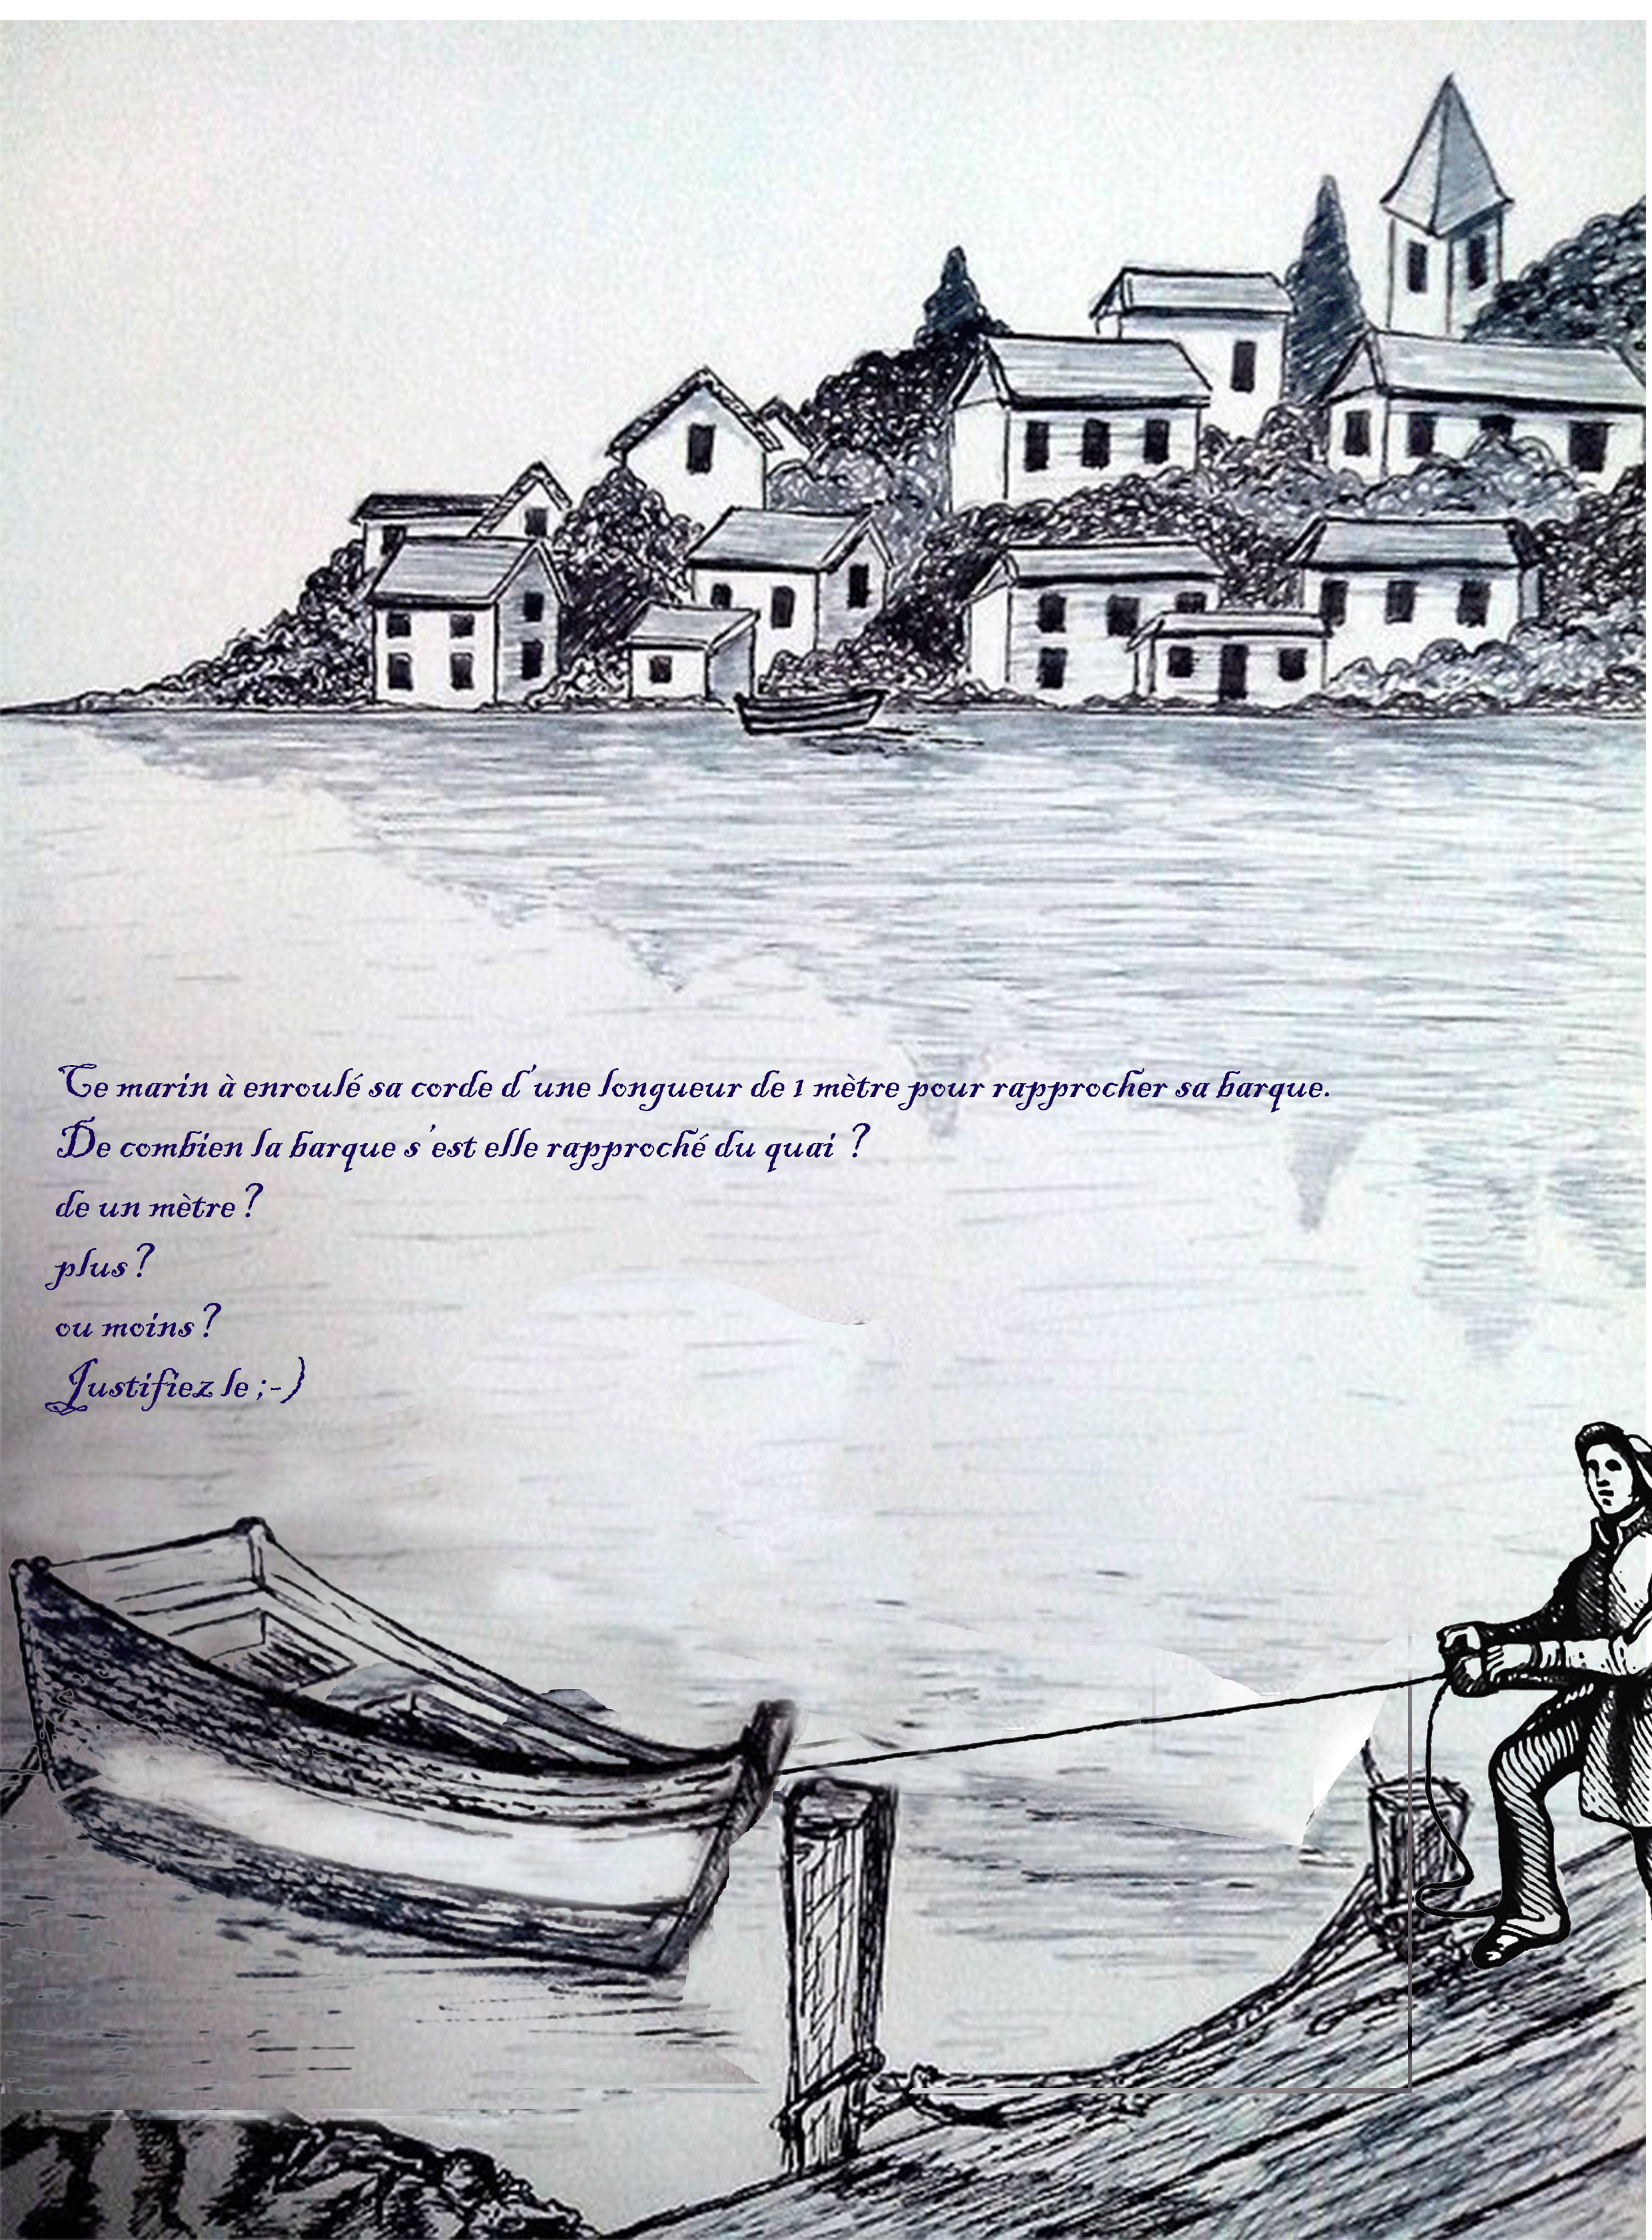 Ce marin à enroulé sa corde d'une longueur de 1 mètre pour rapprocher sa barque.
De combien la barque s'est elle rapproché du quai ?
de un mètre ?
plus ?
ou moins ?
Justifiez le ;-)